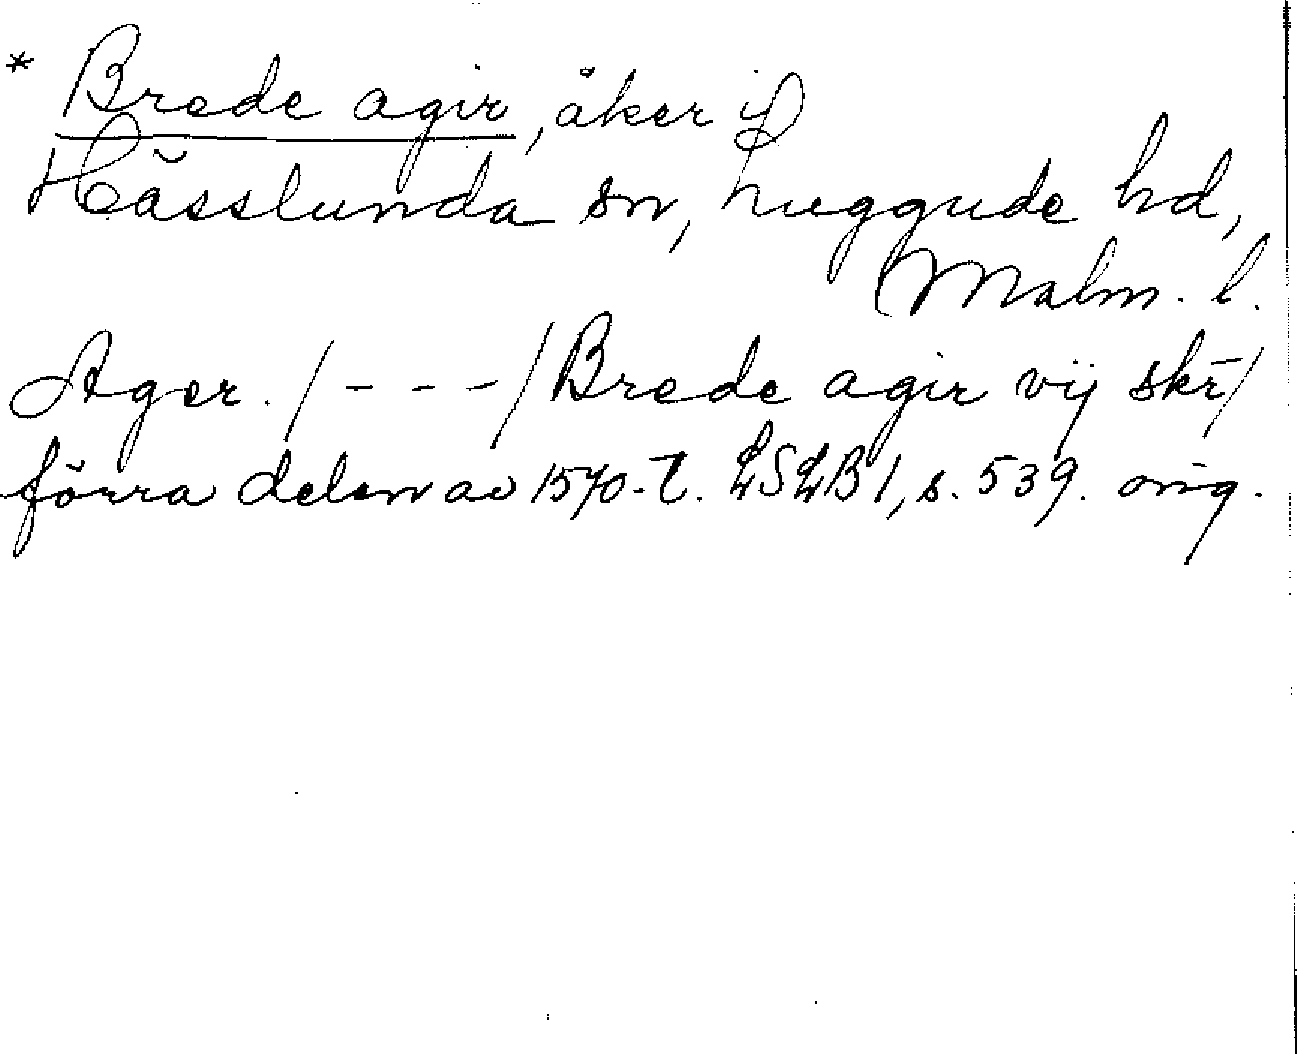 * Brede agir, åker i
Hässlunda sn, Luggude hd,
Malm. l.
Ager. /- - -/ Brede agir vij skr̄/
förra delen av 1570-t. LSLB 1, s. 539. orig.